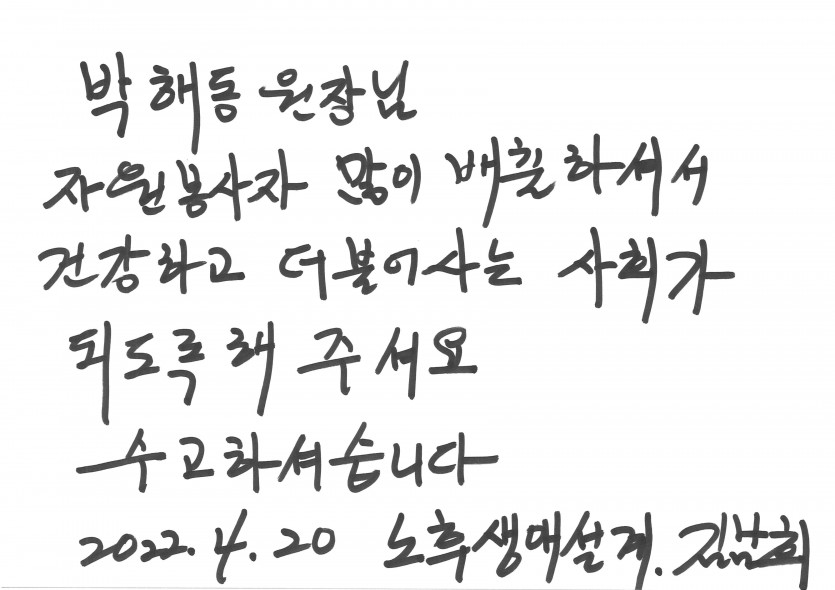 박해동 원장님
자원봉사자 많이 배출하셔서
건강하고 더불어사는 사회가
되도록 해 주셔요
수고하셔습니다
2022. 4. 20 노후생애설계. 김남희